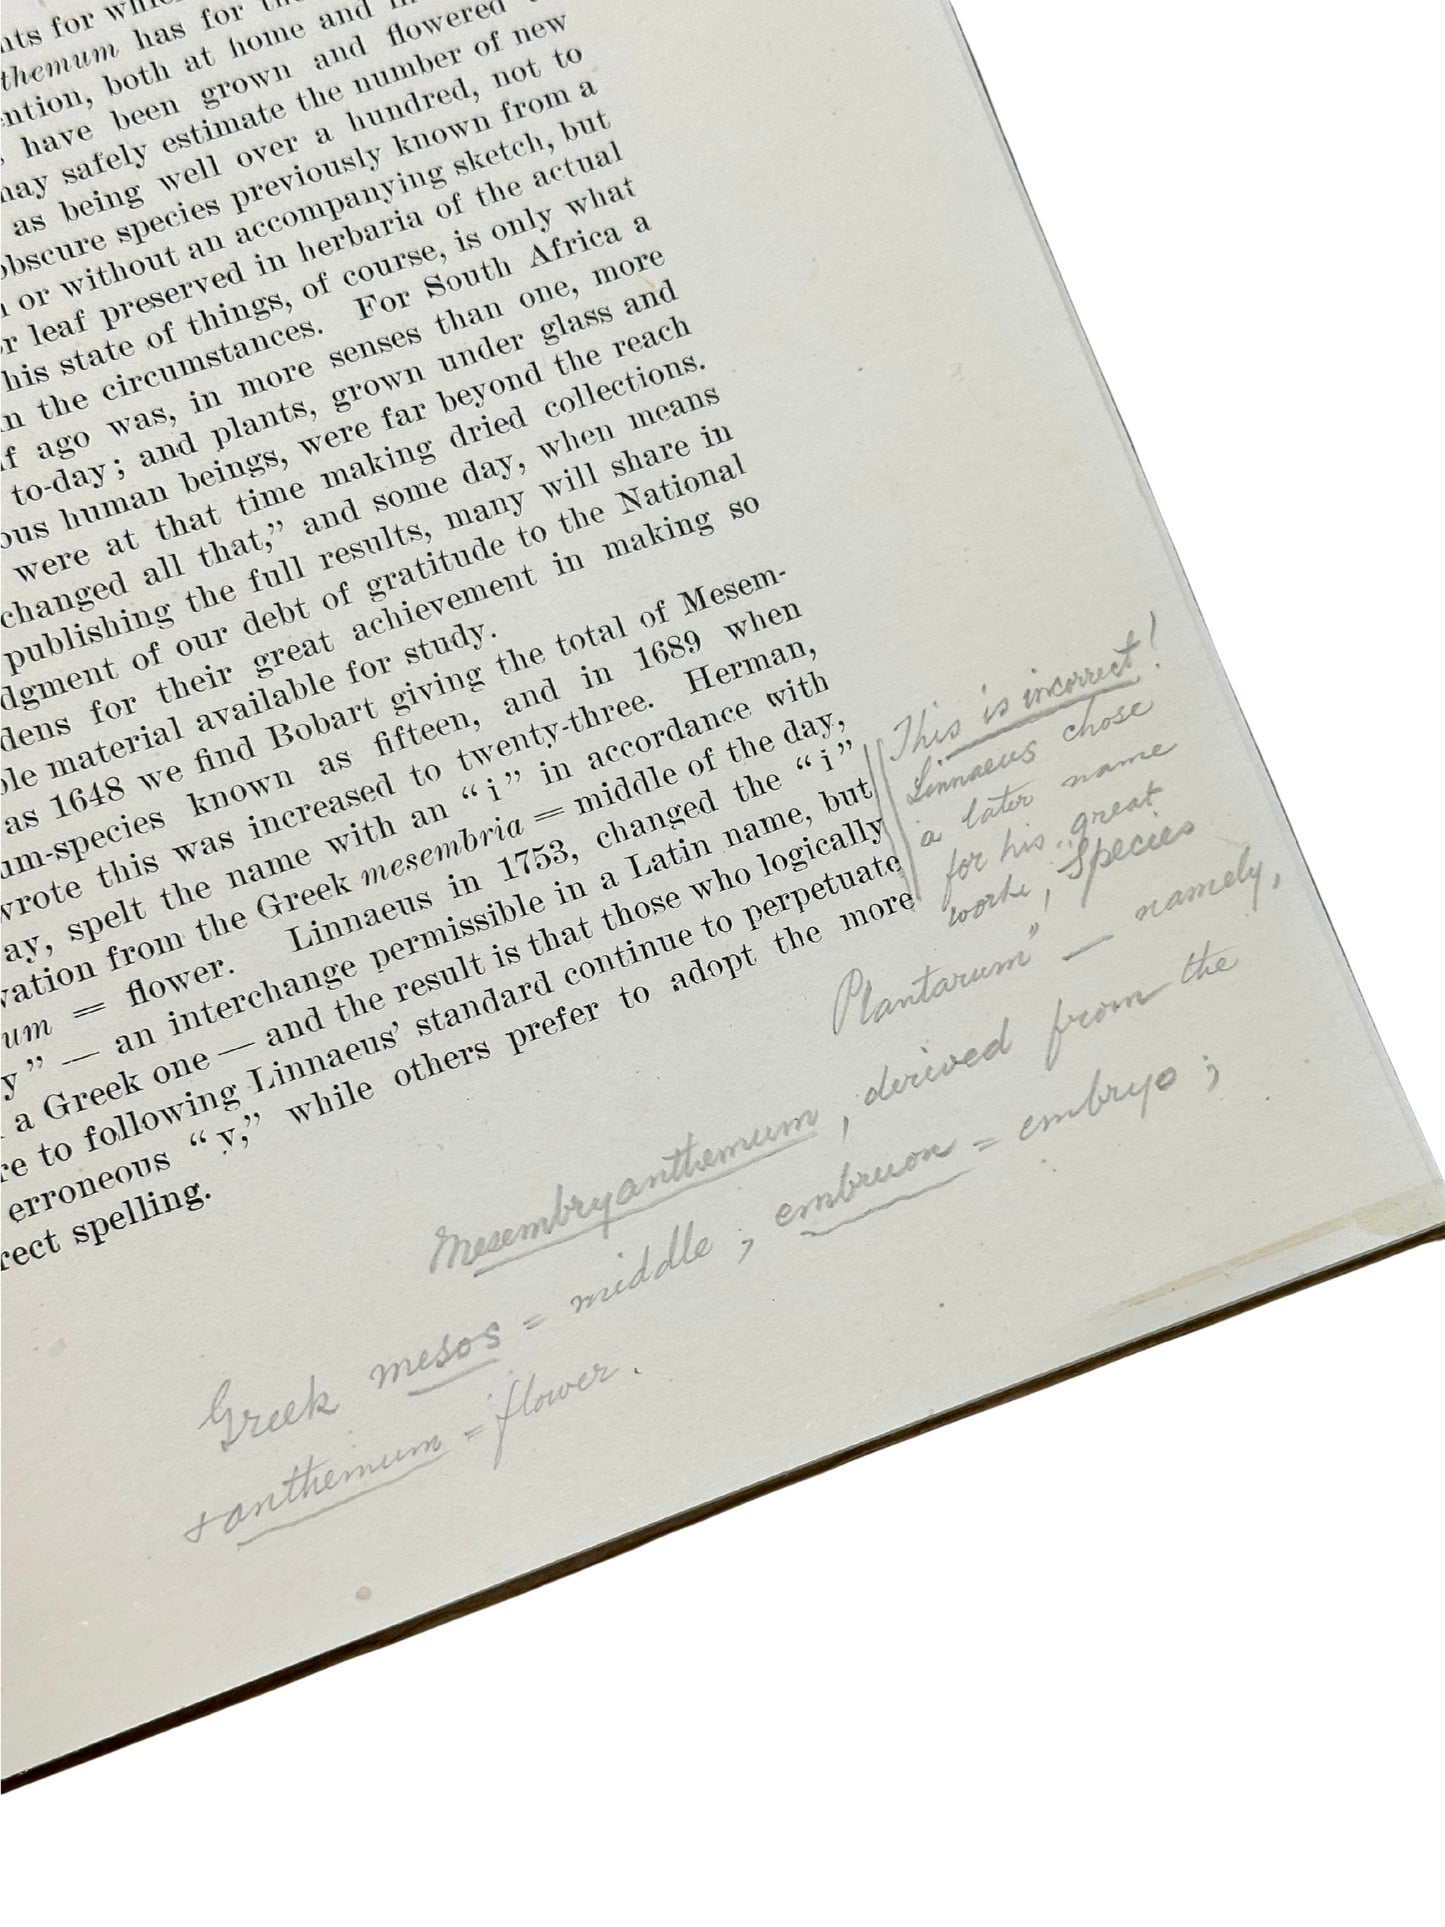 nts for which
themum has for the
ention, both at home and in
, have been grown and flowered
may safely estimate the number of new
as being well over a hundred, not to
obscure species previously known from a
n or without an accompanying sketch, but
or leaf preserved in herbaria of the actual
his state of things, of course, is only what
in the circumstances. For South Africa a
lf ago was, in more senses than one, more
to-day; and plants, grown under glass and
ous human beings, were far beyond the reach
were at that time making dried collections.
changed all that,” and some day, when means
publishing the full results, many will share in
dgment of our debt of gratitude to the National
dens for their great achievement in making so
ble material available for study.
as 1648 we find Bobart giving the total of Mesem-
um-species known as fifteen, and in 1689 when
wrote this was increased to twenty-three. Herman,
ay, spelt the name with an “i” in accordance with
vation from the Greek mesembria = middle of the day,
um = flower. Linnaeus in 1753, changed the “i”
y” — an interchange permissible in a Latin name, but
a Greek one — and the result is that those who logically
re to following Linnaeus’ standard continue to perpetuate
erroneous “y,” while others prefer to adopt the more
rect spelling.
This is incorrect!
Linnaeus chose
a later name
for his great
work, “Species
Plantarum” — namely,
Mesembryanthemum, derived from the
Greek mesos = middle; embruon = embryo;
+ anthemum = flower.